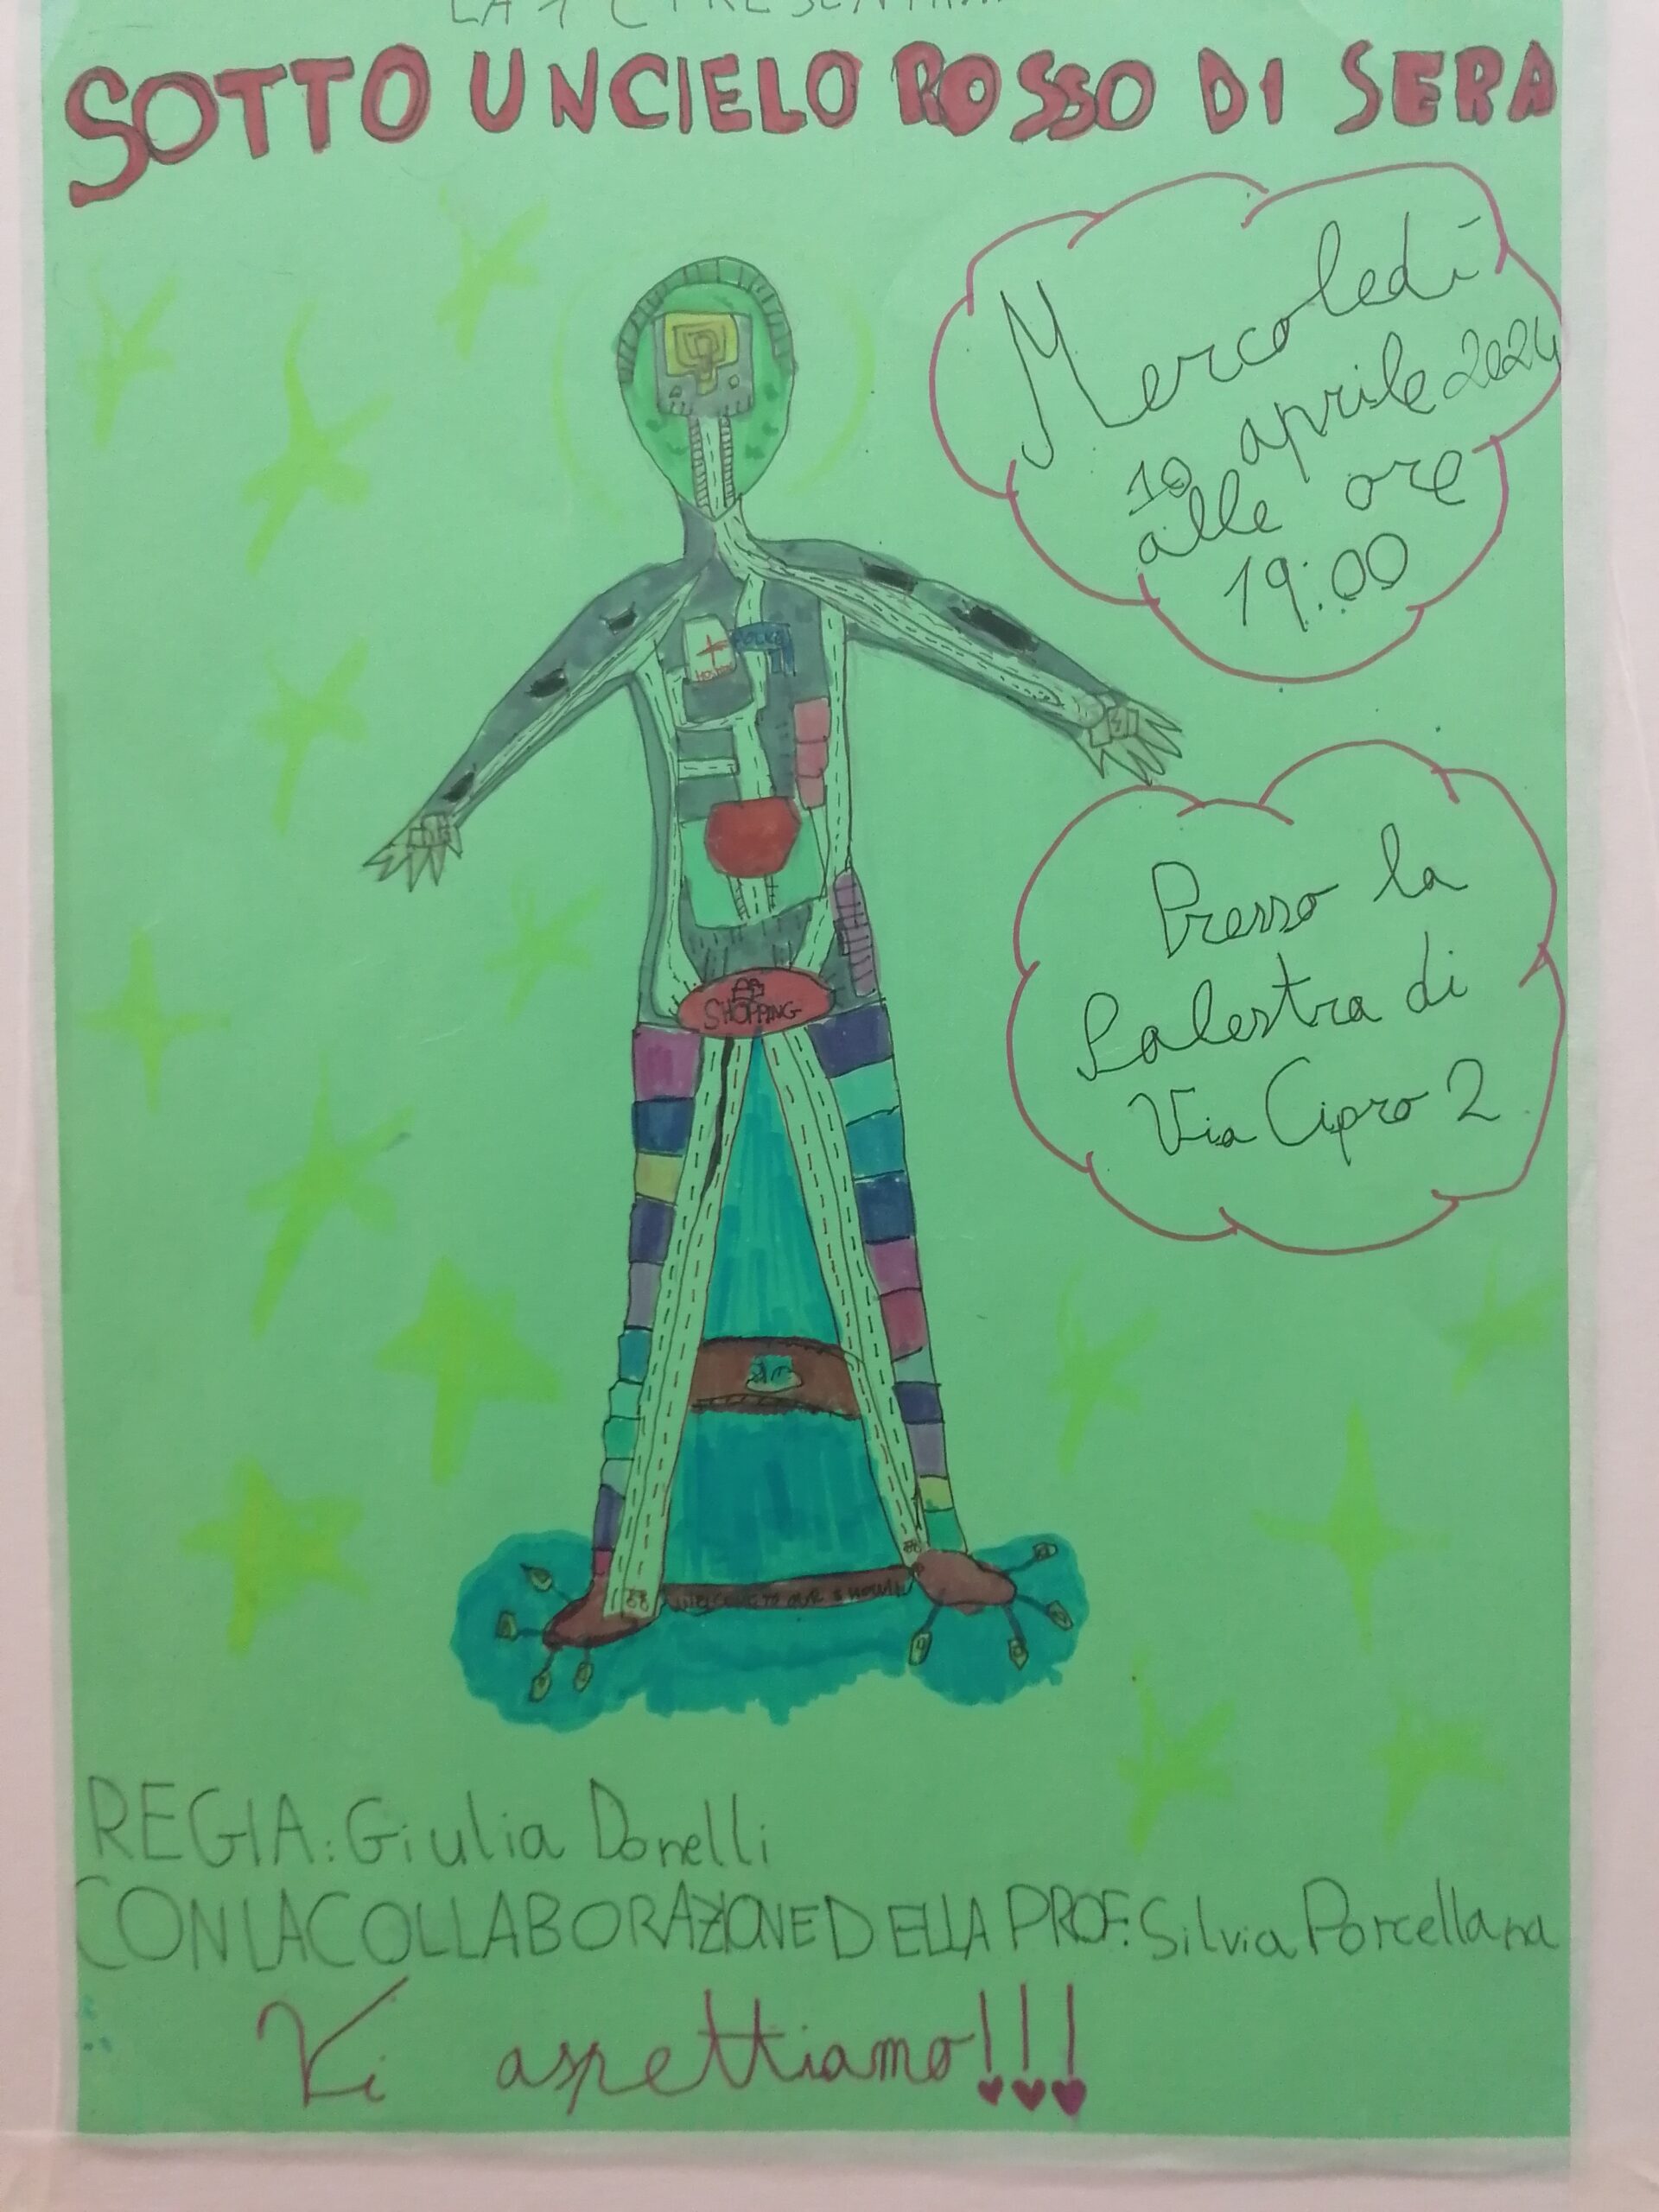 LA 1^C PRESENTA...
SOTTO UN CIELO ROSSO DI SERA
Mercoledì
10 aprile 2024
alle ore
19:00
HOSPITAL
POLICE
Presso la
Palestra di
Via Cipro 2
SHOPPING
WELCOME TO
REGIA: Giulia Donelli
CON LA COLLABORAZIONE DELLA PROF. Silvia Porcellana
Vi aspettiamo!!!